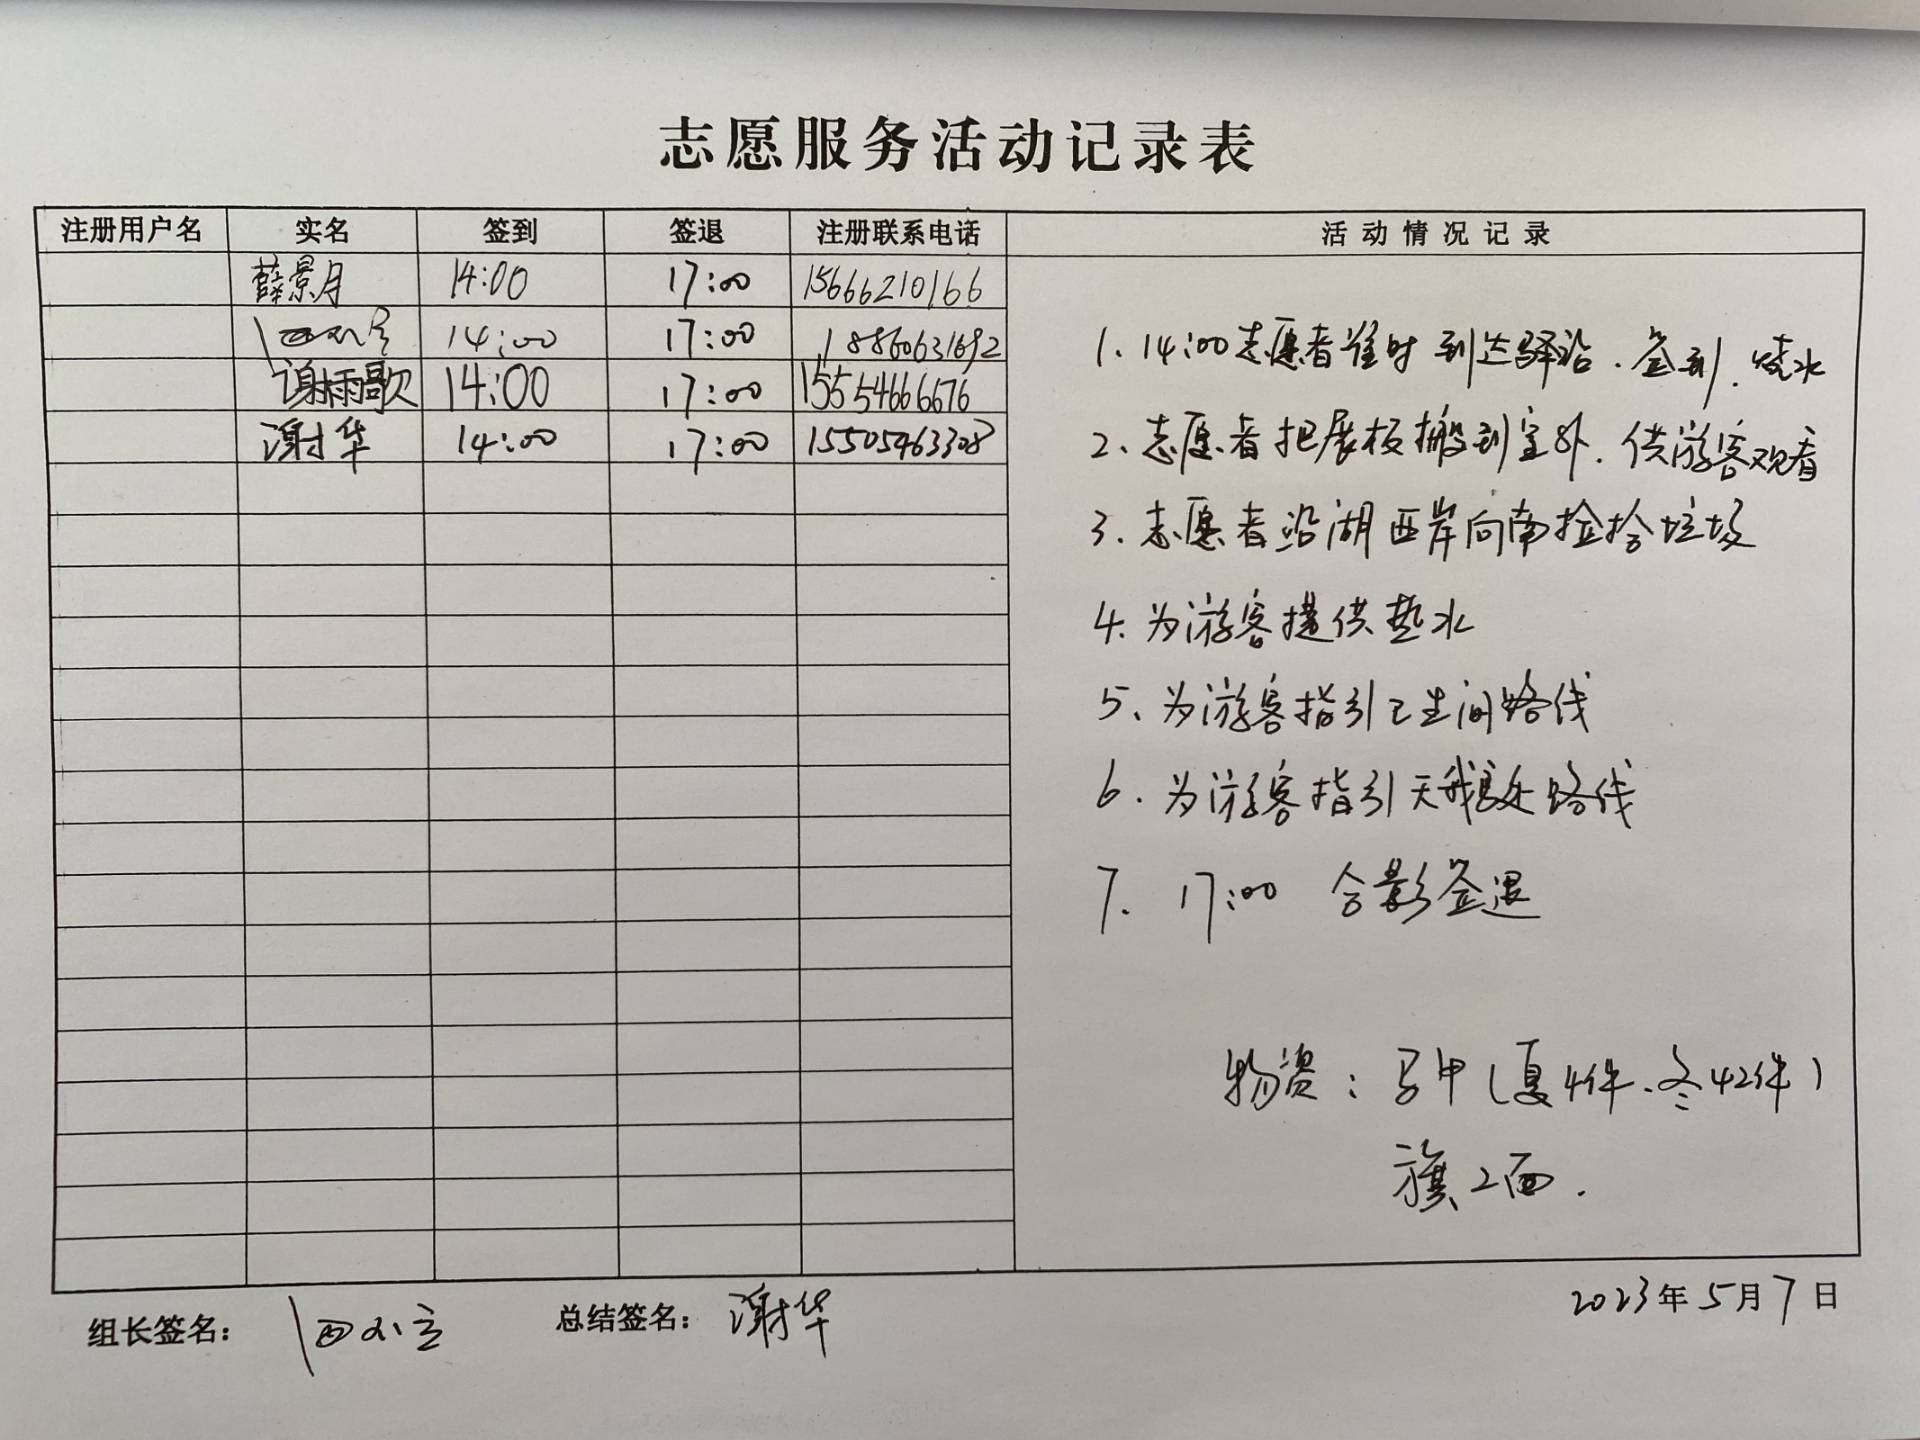 志愿服务活动记录表
注册用户名 实名 签到 签退 注册联系电话 活动情况记录
薛景月 14:00 17:00 15666210166
14:00 17:00 18860631692
谢雨歌 14:00 17:00 15554666676
谢华 14:00 17:00 15505463308
1. 14:00志愿者准时到达驿站.签到.烧水
2、志愿者把展板搬到室外.供游客观看
3、志愿者沿湖西岸向南捡拾垃圾
4.为游客提供热水
5、为游客指引卫生间路线
6.为游客指引天鹅 路线
7. 17:00 合影签退
物资：马甲(夏4件、冬42件)
旗2面.
组长签名： 总结签名：谢华 2023年5月7日